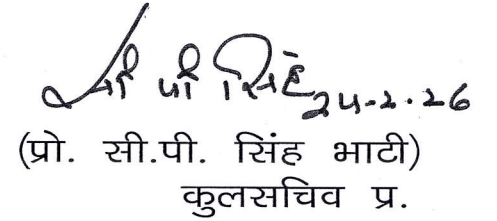 सी पी सिंह 24-2-26
(प्रो. सी.पी. सिंह भाटी)
कुलसचिव प्र.